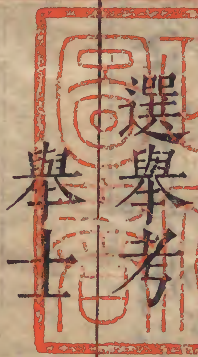 選舉考
舉士